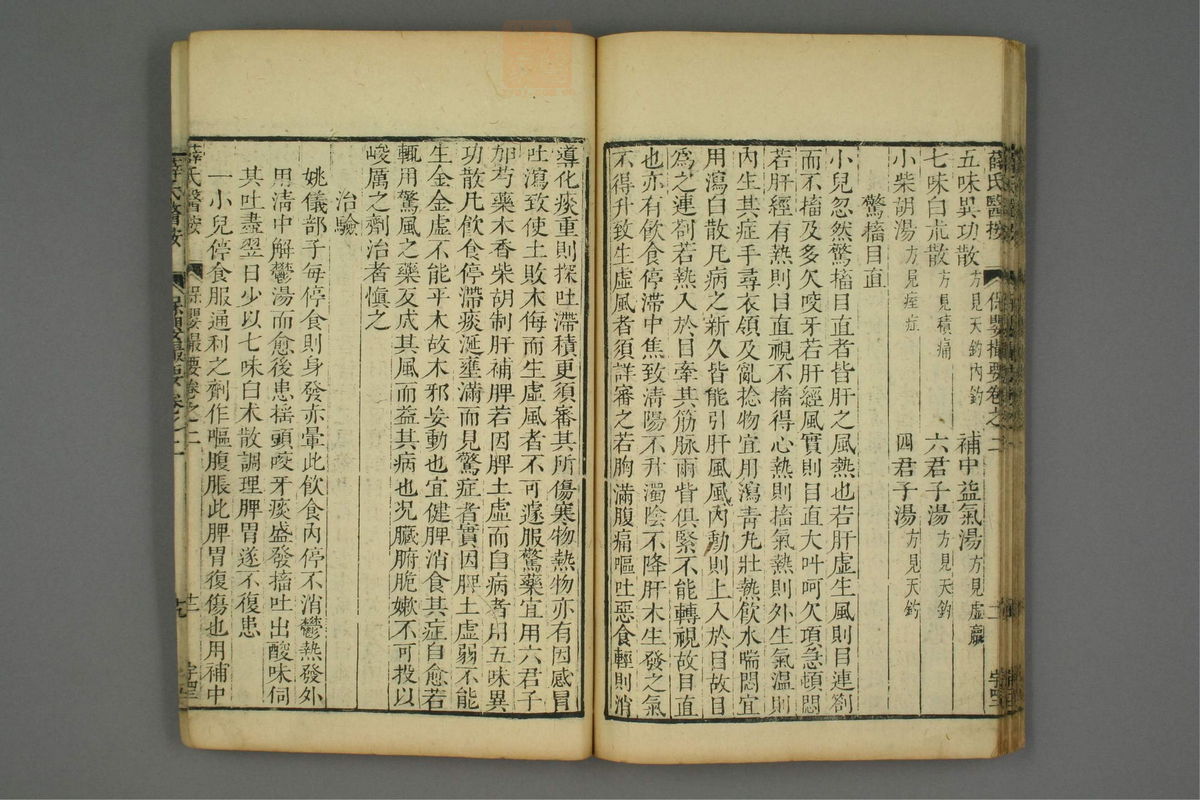 薛氏醫按 保嬰撮要卷之二
五味異功散方見天釣內釣 補中益氣湯方見虛羸
七味白朮散方見積痛 六君子湯方見天釣
小柴胡湯方見痙症 四君子湯方見天釣
驚搐目直
小兒忽然驚搐目直者皆肝之風熱也若肝虛生風則目連劄
而不搐及多欠咬牙若肝經風實則目直大叫呵欠項急頓悶
若肝經有熱則目直視不搐得心熱則搐氣熱則外生氣溫則
內生其症手尋衣領及亂捻物宜用瀉青丸壯熱飲水喘悶宜
用瀉白散凡病之新久皆能引肝風風內動則上入於目故目
為之連劄若熱入於目牽其筋脉兩眥俱緊不能轉視故目直
也亦有飲食停滯中焦致清陽不升濁陰不降肝木生發之氣
不得升致生虛風者須詳審之若胸滿腹痛嘔吐惡食輕則消
導化痰重則探吐滯積更須審其所傷寒物熱物亦有因感冒
吐瀉致使土敗木侮而生虛風者不可遽服驚藥宜用六君子
加芍藥木香柴胡制肝補脾若因脾土虛而自病者用五味異
功散凡飲食停滯痰涎壅滿而見驚症者實因脾土虛弱不能
生金金虛不能平木故木邪妄動也宜健脾消食其症自愈若
輒用驚風之藥反成其風而益其病也况臟腑脆嫩不可投以
峻厲之劑治者慎之
治驗
姚儀部子每停食則身發赤暈此飲食內停不消鬱熱發外
用清中解鬱湯而愈後患搖頭咬牙痰盛發搐吐出酸味伺
其吐盡翌日少以七味白朮散調理脾胃遂不復患
一小兒停食服通利之劑作嘔腹脹此脾胃復傷也用補中
薛氏醫按 保嬰撮要卷之二